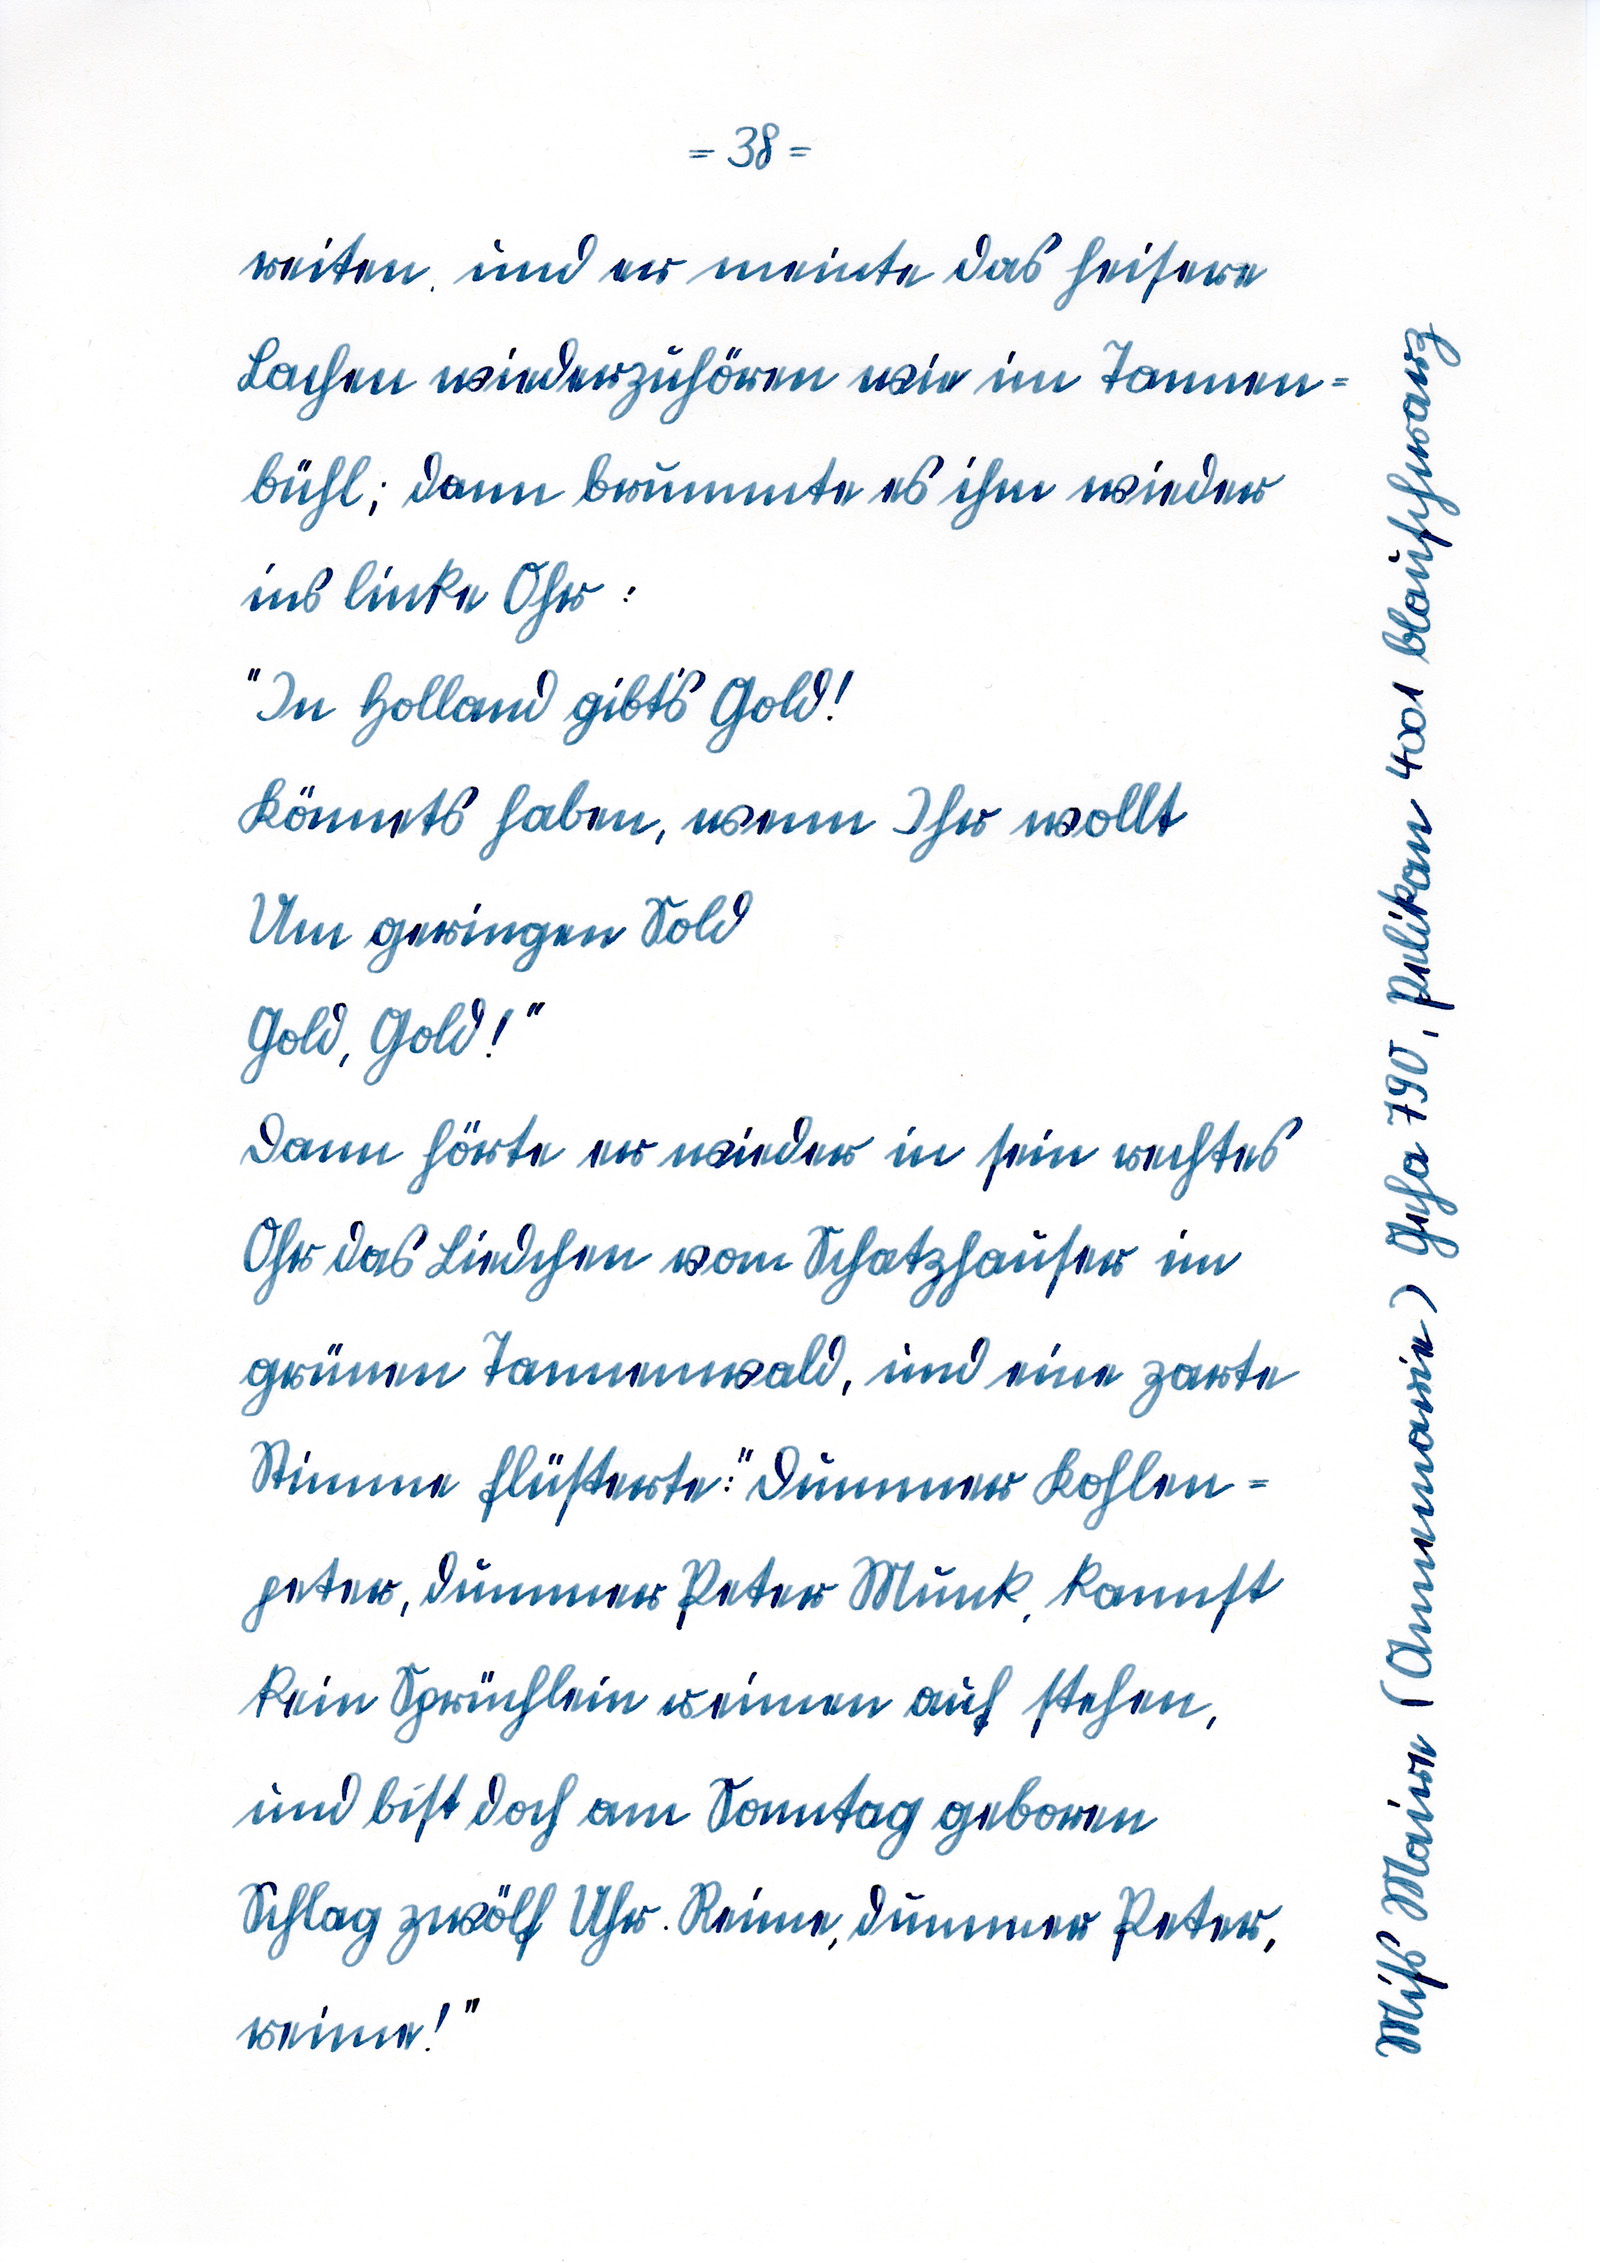 = 38 =
reiten. und er meinte das heisere
Lachen wiederzuhören wie im Tannen=
bühl; dann brummte es ihm wieder
ins linke Ohr:
"In Holland gibts Gold!
Könnets haben, wenn Ihr wollt
Um geringen Sold
Gold, Gold!"
Dann hörte er wieder in sein rechtes
Ohr das Liedchen vom Schatzhauser im
grünen Tannenwald, und eine zarte
Stimme flüsterte: "Dummer Kohlen=
peter, dummer Peter Munk, kannst
kein Sprüchlein reimen auf stehen,
und bist doch am Sonntag geboren
Schlag zwölf Uhr. Reime, dummer Peter,
reime!"
Miss Mairu (Annemarie) Geha 790, Pelikan 4001 blauschwarz